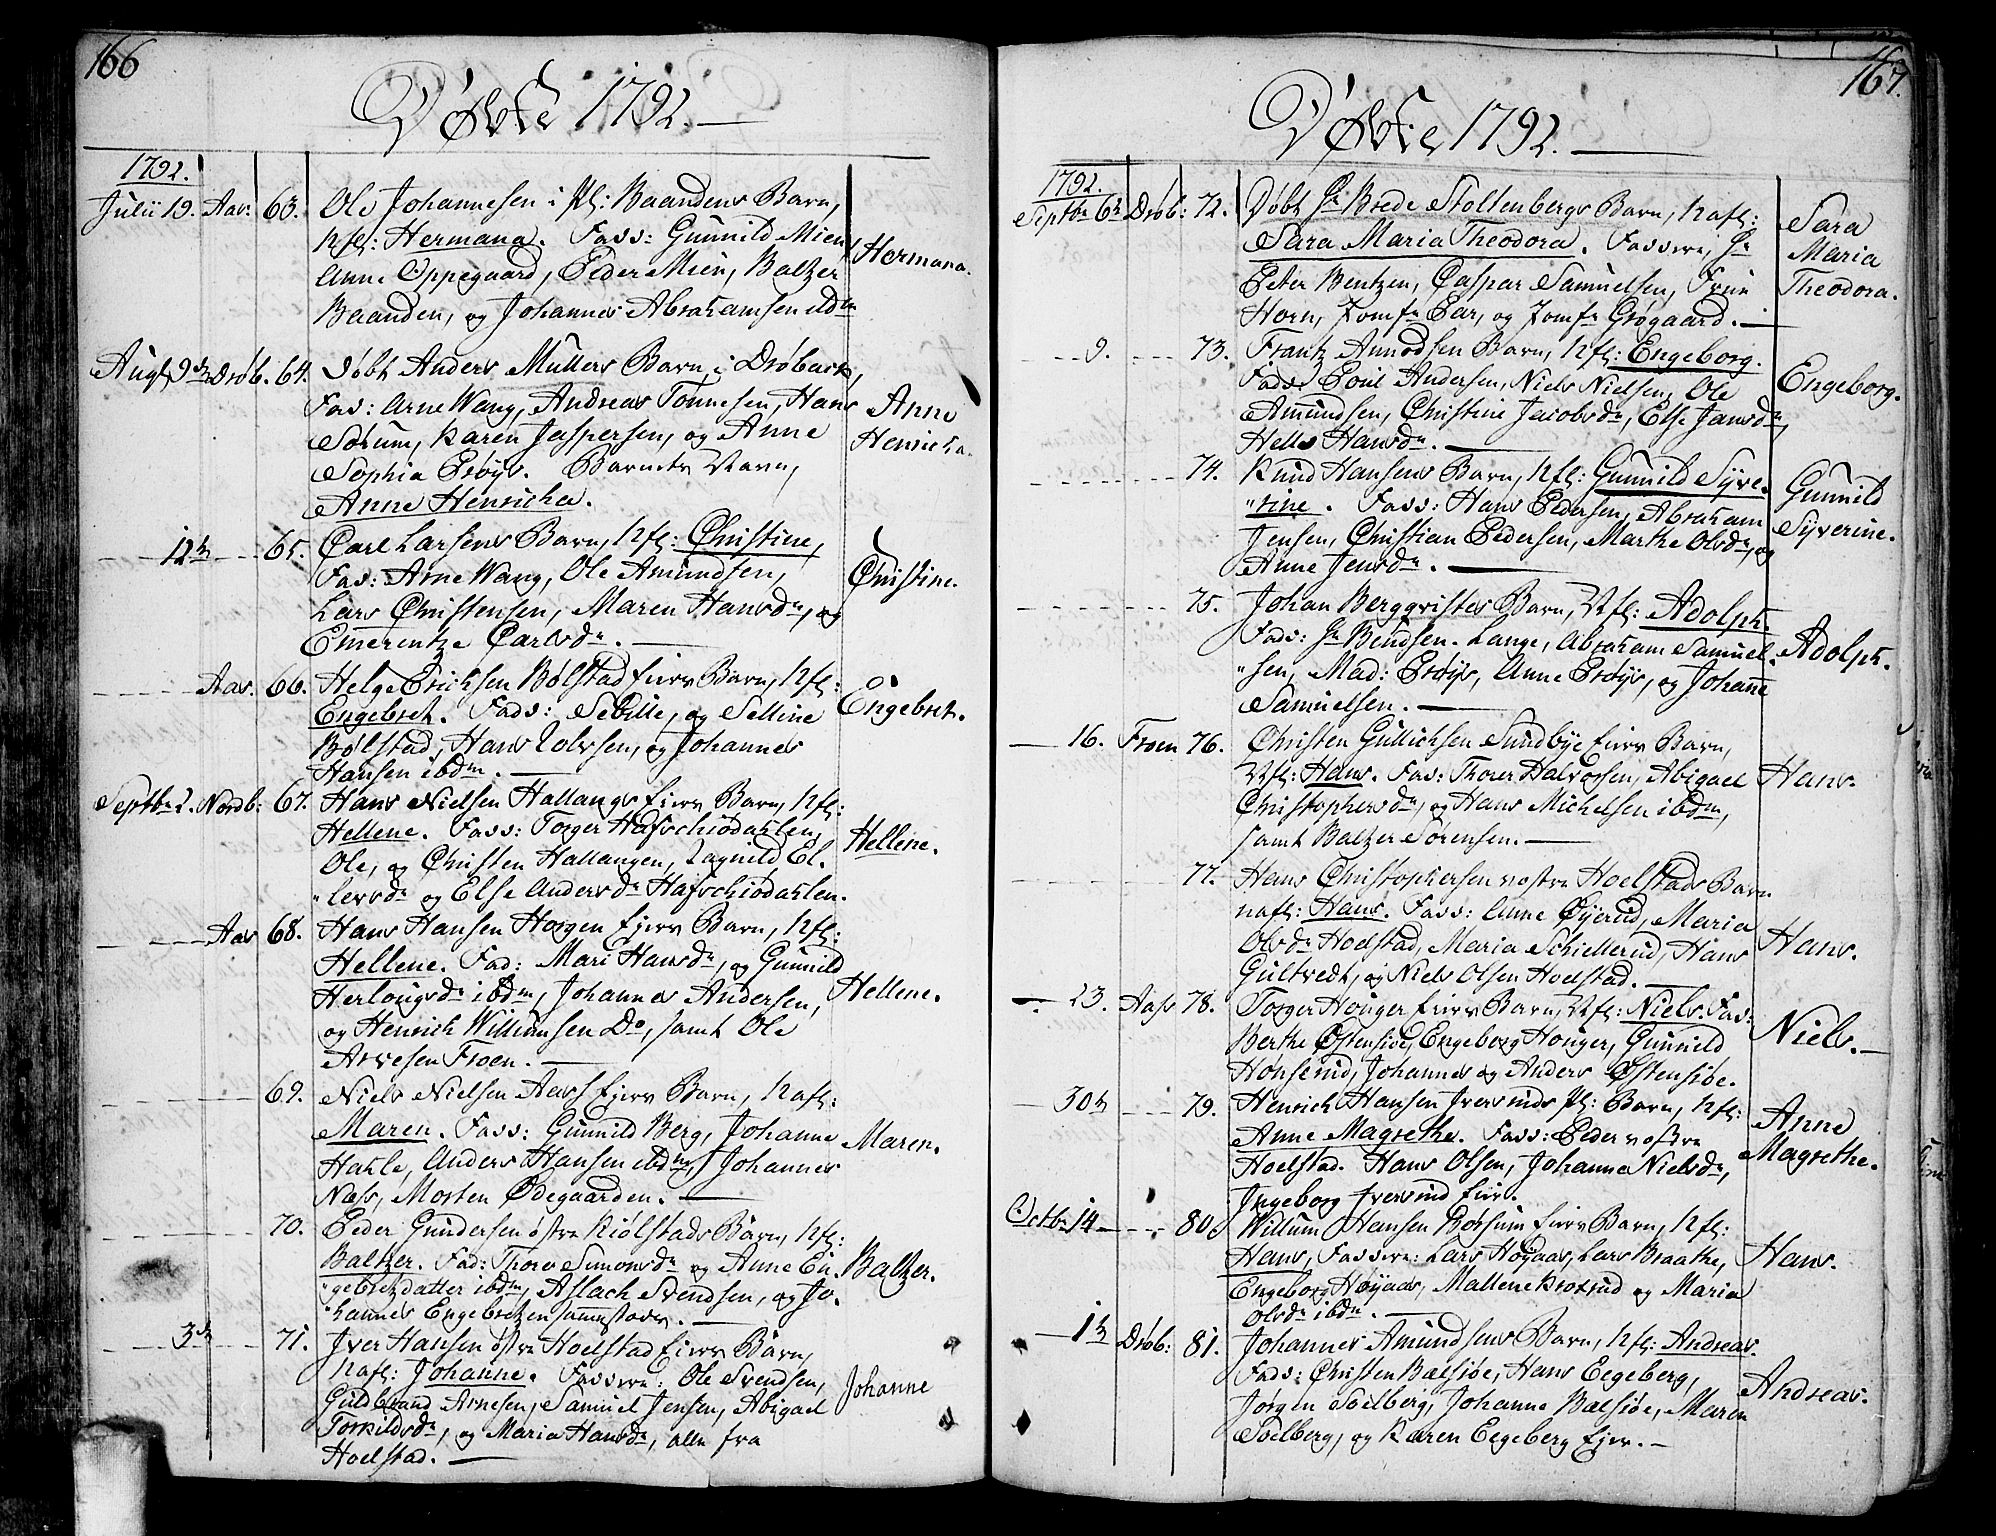 166
Døbte 1792.
1792.
Julii 19. Aas: 63. Ole Johannesen i Pl: Baandens Barn,
kfl: Hermana. Fass: Gunnild Mien,
Anne Oppegaard, Peder Mien, Baltzer
Baanden, og Johannes Abrahamsen ibdm
Hermana.
Aug: 9de Drøb. 64. Døbt Anders Mullers Barn i Drøbach,
Fas: Arne Wang, Andreas Tønnesen, Hans
Sørum, Karen Jaspersen, og Anne
Sophia Prøys. Barnets Navn,
Anne Henricha.
Anne
Henricha.
12te 65. Carl Larsens Barn, kfl: Christine,
Fas: Arne Wang, Ole Amundsen,
Lars Christensen, Maren Hansdr, og
Emerentze Carlsdr.
Christine.
Aas. 66. Helge Ericksen Bølstad Eiers Barn, kfl:
Engebret. Fads: Sebille, og Selline
Bølstad, Hans Jolvsen, og Johannes
Hansen ibdm.
Engebret.
Septbr 2. Nordb: 67. Hans Nielsen Hallangs Eiers Barn, kfl:
Hellene. Fass: Torger Hafschiødahlen,
Ole, og Christen Hallangen, Ragnild El-
"lersdr og Else Andersdr Hafschiødahlen.
Hellene.
Aas 68. Hans Hansen Horgen Ejers Barn, kfl:
Hellene. Fad: Mari Hansdr, og Gunnild
Herlougsdr ibdm, Johannes Andersen,
og Henrich Willumsen Do, samt Ole
Arvesen Froen.
Hellene.
69. Niels Nielsen Aass Ejers Barn, kafl:
Maren. Fass: Gunnild Berg, Johanne
Hakle, Anders Hansen ibdm, Johannes
Næss, Morten Ødegaarden.
Maren.
70. Peder Gundersen østre Kiølstads Barn, kfl:
Baltzer. Fad: Thore Simonsdr og Anne En-
"gebretzdatter ibdm, Aslach Svendsen, og Jo-
"hannes Engebretzen sammestæds.
Baltzer.
3de 71. Iver Hansen østre Hoelstad Eiers Barn,
kafl: Johanne. Fassere: Ole Svendsen,
Guldbrand Arnesen, Samuel Jensen, Abigael
Torkildsdr, og Maria Hansdr, alle fra
Hoelstad.
Johanne
167.
Døbte 1792.
1792.
Septbr 6te Drøb: 72. Døbt Hr Brede Stoltenbergs Barn, kafl:
Sara Maria Theodora. Fassere, Hr
Peter Bentzen, Caspar Samuelsen, Frue
Horn, Jomfr Par, og Jomfr Grøgaard.
Sara
Maria
Theodora.
9. 73. Frantz Arnodsen Barn, kfl: Engeborg.
Fads: Poul Andersen, Niels Nielsen, Ole
Amundsen, Christine Jacobsdr, Else Jansdr,
Helle Hansdr.
Engeborg.
74. Knud Hansens Barn, kfl: Gunnild Syve-
"rine. Fass: Hans Pedersen, Abraham
Jensen, Christian Pedersen, Marthe Olsdr, og
Anne Jensdr.
Gunnild
Syverine.
75. Johan Bergqvistes Barn, kfl: Adolph.
Fads: Hr Bendsen. Lange, Abraham Samuel-
"sen, Mad: Prøys, Anne Prøys, og Johanne
Samuelsen.
Adolph.
16. Froen 76. Christen Gullichsen Sundbye Eiers Barn,
kfl: Hans. Fas: Thorer Halvorsen, Abigael
Christophersdr, og Hans Michelsen ibdm,
samt Baltzer Sørensen.
Hans.
77. Hans Christophersen vestre Hoelstads Barn
kafl: Hans. Fass: Anne Øyerud, Maria
Olsdr Hoelstad, Maria Schillerud, Hans
Gultvedt, og Niels Olsen Hoelstad.
Hans.
23. Aass 78. Torger Houger Eiers Barn, kfl: Niels. Fas:
Berthe Østensiøe, Engeborg Houger, Gunnild
Hønserud, Johannes og Anders Østensiøe.
Niels.
30te 79. Henrich Hansen Iversruds Pl: Barn, kfl:
Anne Magrethe. Fass: Peder vestre
Hoelstad. Hans Olsen, Johanna Nielsdr,
Ingeborg Iversrud Eier.
Anne
Magrethe.
Octbr 14 80. Willum Hansen Rørsum Eiers Barn, kfl:
Hans, Fassere: Lars Høyaas, Lars Braathe,
Engeborg Høyaas, Mallene Krosrud og Maria
Olsdr ibdm.
Hans.
1te Drøb: 81. Johannes Amundsens Barn, kfl: Andreas.
Fads: Christen Balsiøe, Hans Eegeberg,
Jørgen Soelberg, Johanne Balsiøe, Maren
Soelberg, og Karen Eegeberg Ejer.
Andreas.